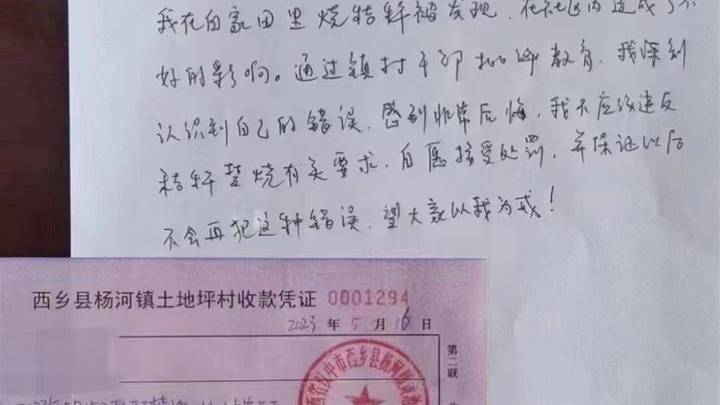 我在自家田里烧秸秆被发现,在社区内造成了不
好的影响。通过镇村干部批评教育,我深刻
认识到自己的错误,感到非常后悔,我不应该违反
秸秆禁烧有关要求,自愿接受处罚,并保证以后
不会再犯这种错误,望大家以我为戒!
西乡县杨河镇土地坪村收款凭证 0001294
2023 年 5 月 16 日
第二联
汉中市西乡县杨河镇